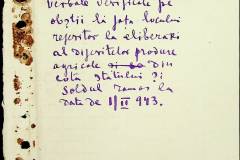 verbale verificate pe
obștii la fața locului
referitor la eliberări
al diferitelor produse
agricole din
cota statului și
soldul rămas la
data de 1/II 943.